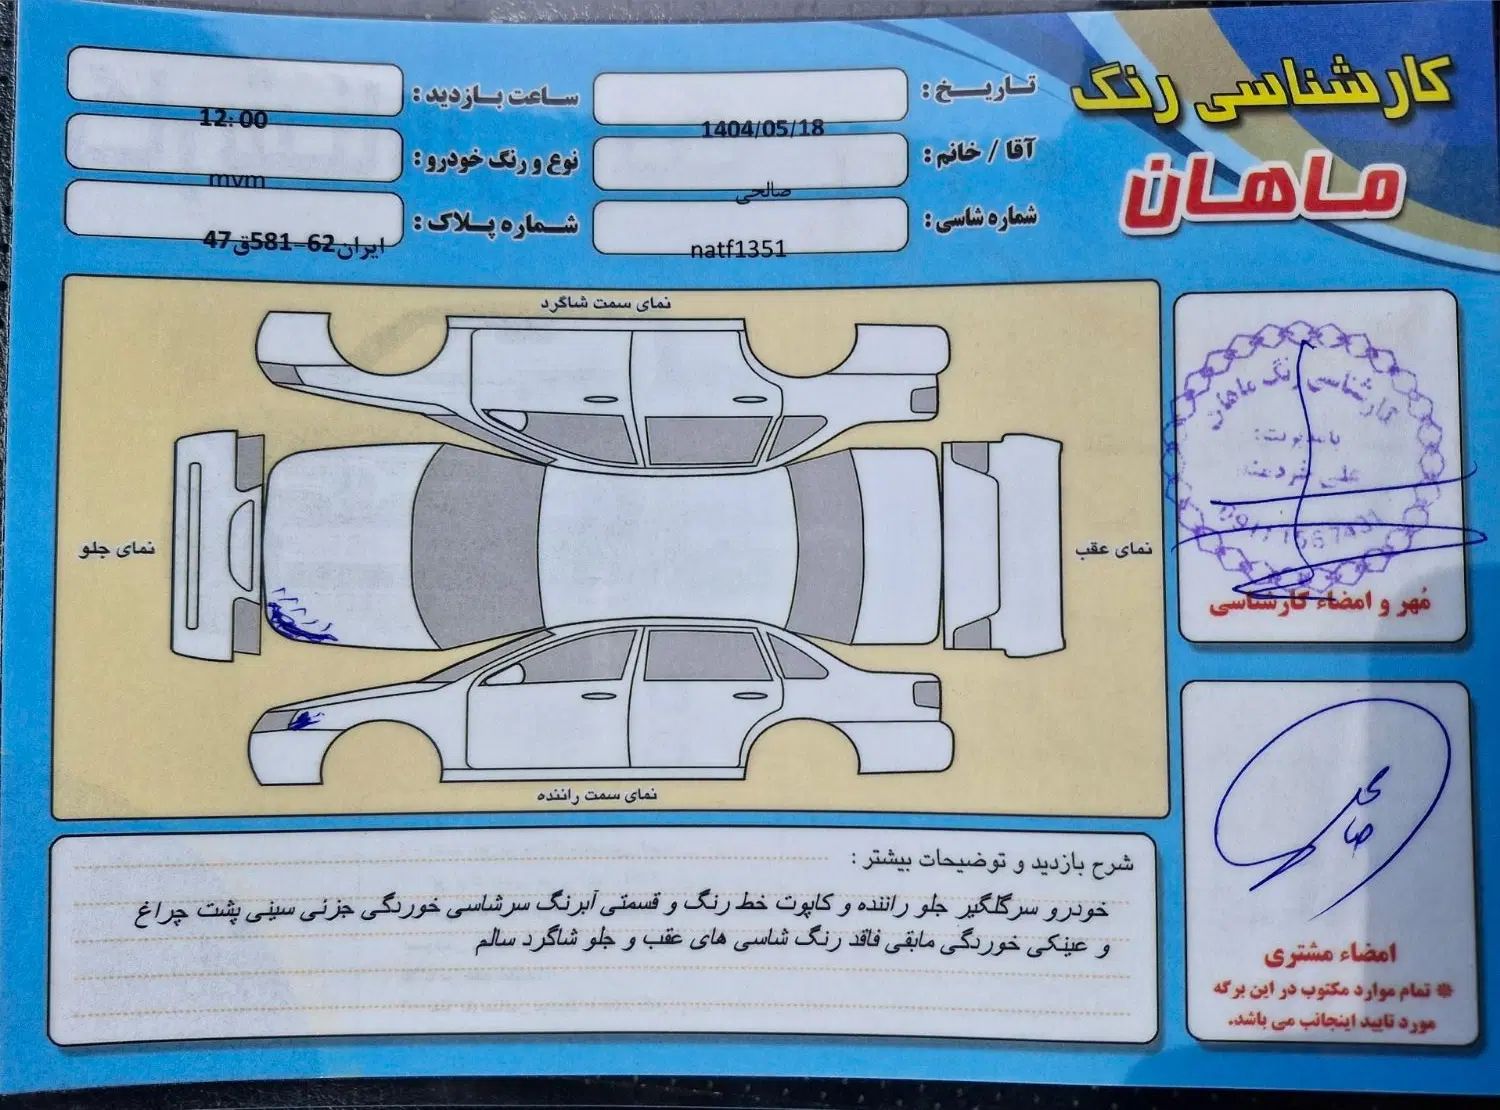 کارشناسی رنگ
ماهان
تاریخ :
1404/05/18
ساعت بازدید :
12:00
آقا / خانم :
صالحی
نوع و رنگ خودرو :
mvm
شماره شاسی :
natf1351
شماره پلاک :
ایران62-581ق47
نمای سمت شاگرد
نمای جلو
نمای عقب
نمای سمت راننده
کارشناسی رنگ ماهان
با مدیریت :
علی
مُهر و امضاء کارشناسی
شرح بازدید و توضیحات بیشتر :
خودرو سرگلگیر جلو راننده و کاپوت خط رنگ و قسمتی آبرنگ سرشاسی خوردگی جزئی سینی پشت چراغ
و عینکی خوردگی مابقی فاقد رنگ شاسی های عقب و جلو شاگرد سالم
صالحی
امضاء مشتری
* تمام موارد مکتوب در این برگه
مورد تایید اینجانب می باشد.